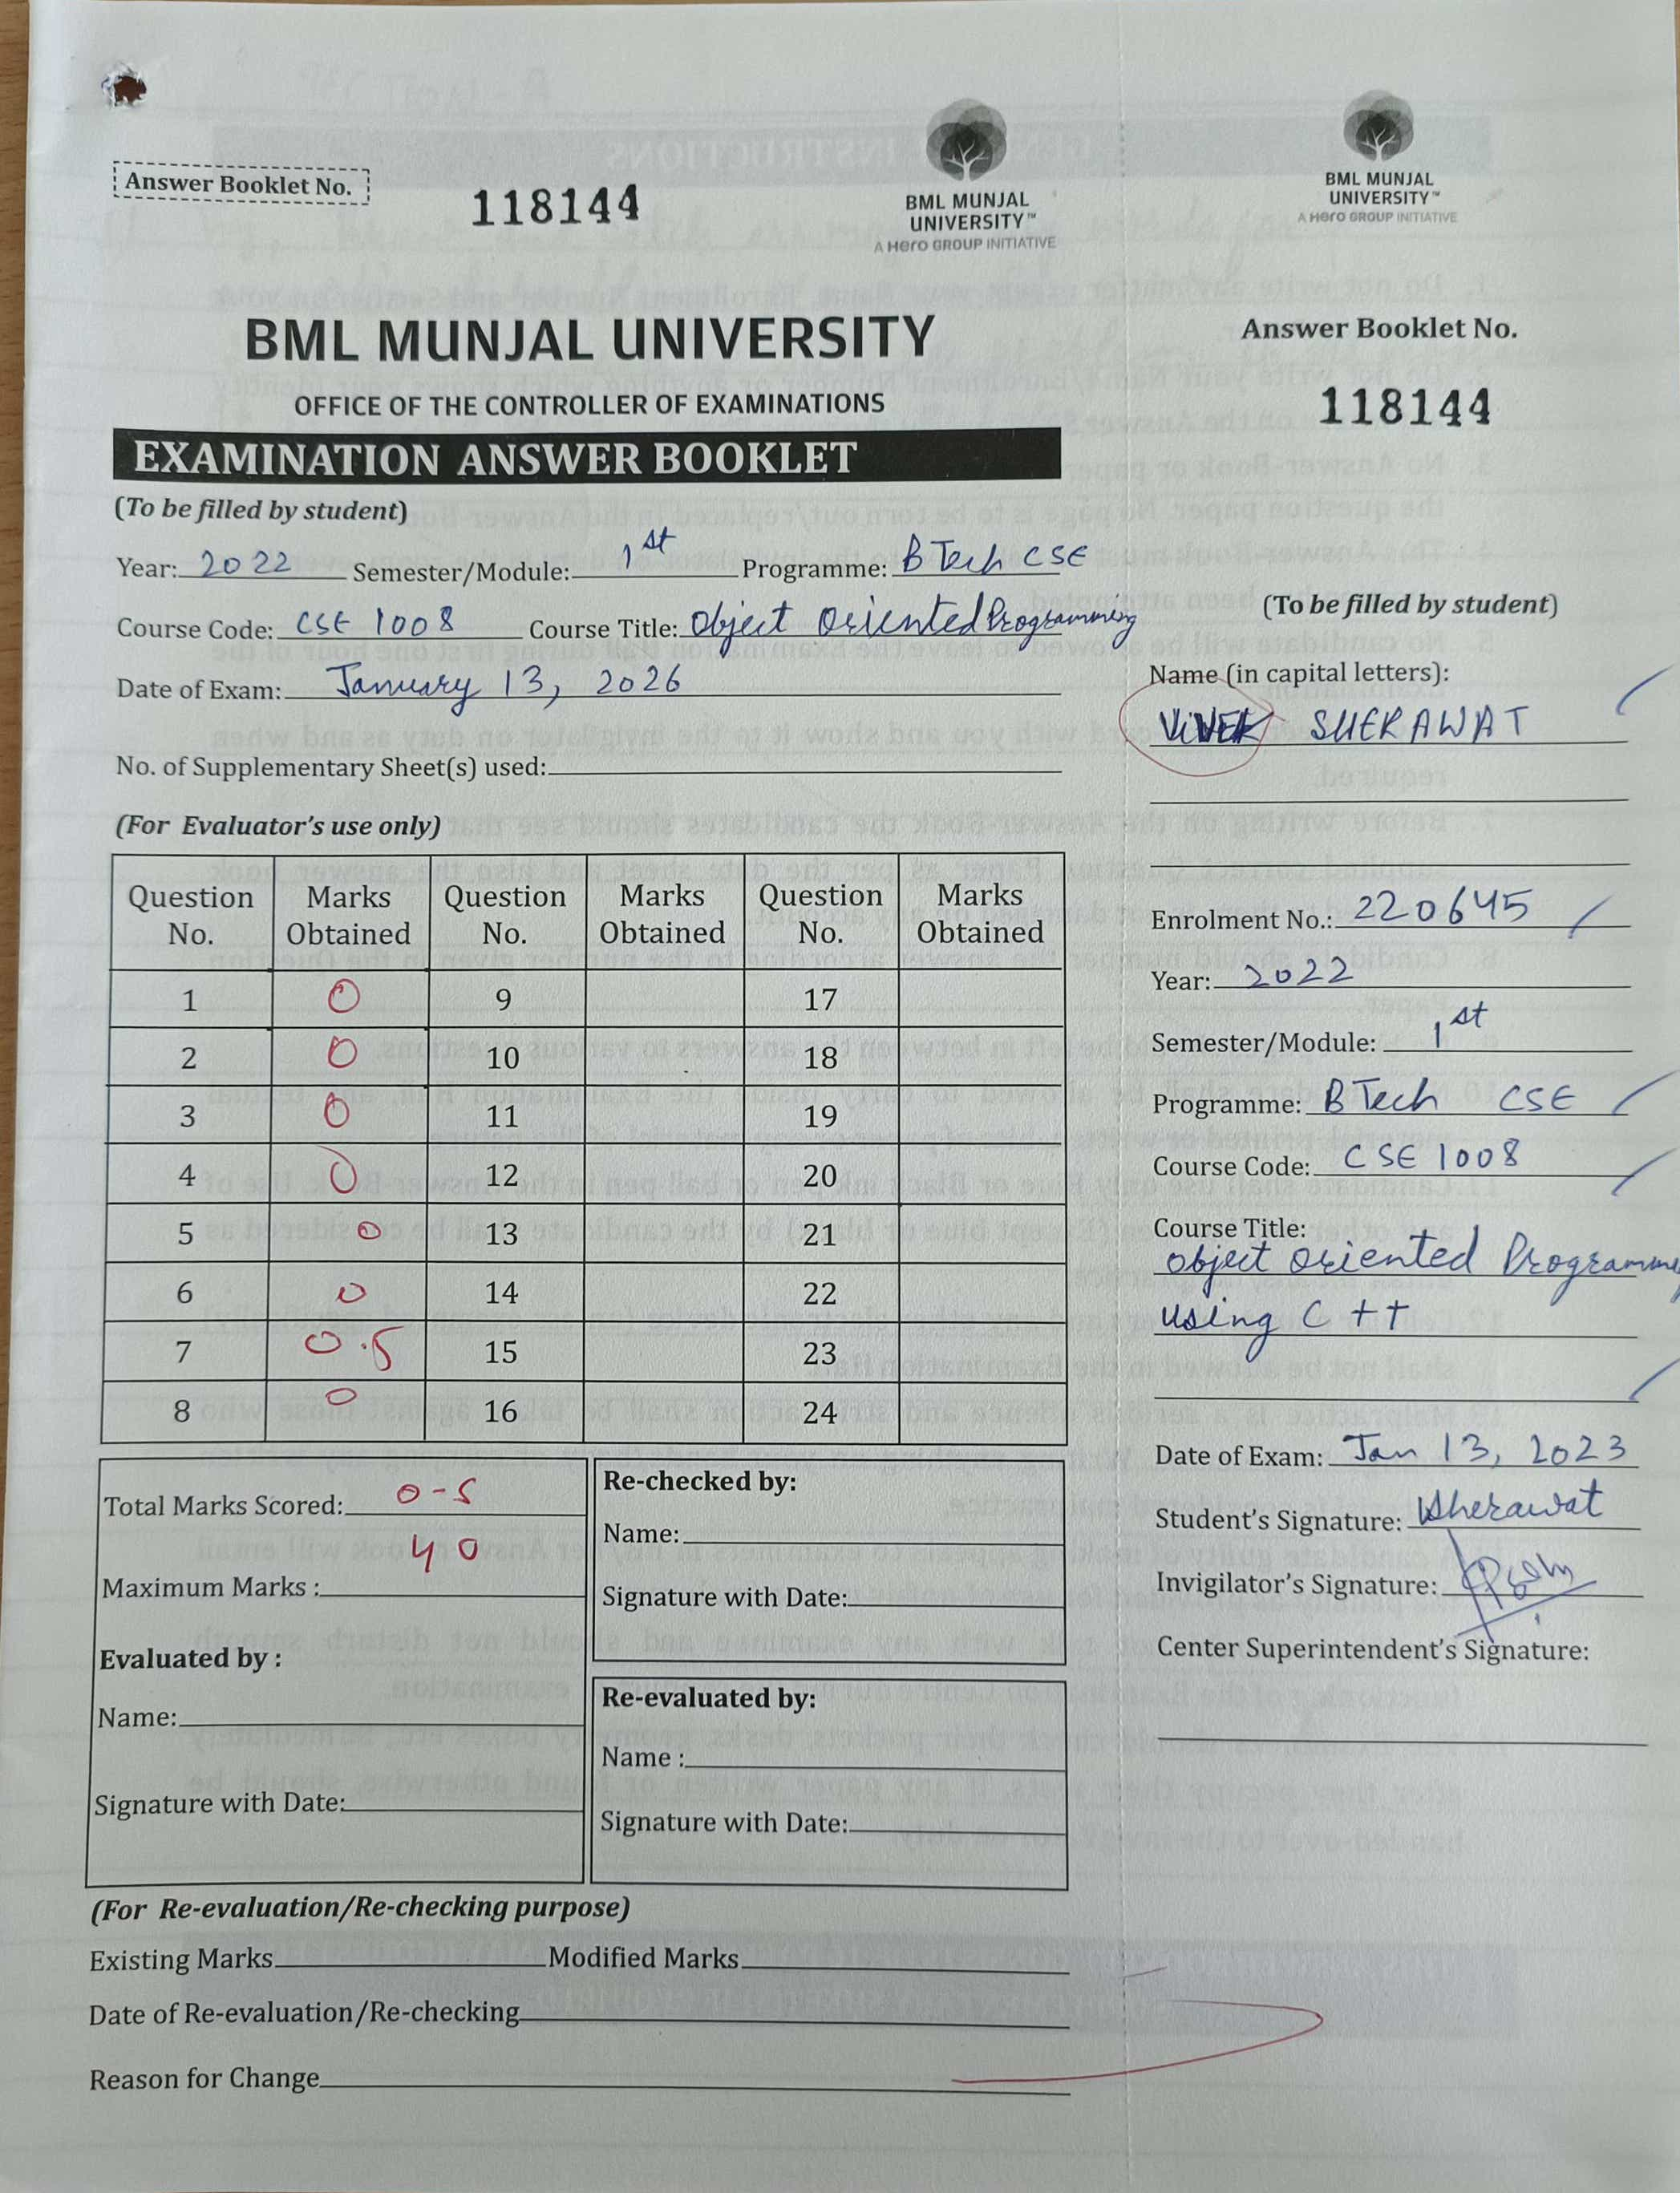 Answer Booklet No.
118144
BML MUNJAL
UNIVERSITY™
A Hero GROUP INITIATIVE
BML MUNJAL UNIVERSITY
OFFICE OF THE CONTROLLER OF EXAMINATIONS
EXAMINATION ANSWER BOOKLET
(To be filled by student)
Year: 2022 Semester/Module: 1st Programme: B Tech CSE
Course Code: CSE 1008 Course Title: Object Oriented Programming
Date of Exam: January 13, 2026
No. of Supplementary Sheet(s) used:
(For Evaluator's use only)
Question No. Marks Obtained Question No. Marks Obtained Question No. Marks Obtained
1 0 9 17
2 0 10 18
3 0 11 19
4 0 12 20
5 0 13 21
6 0 14 22
7 0.5 15 23
8 0 16 24
Total Marks Scored: 0-5
Maximum Marks : 40
Evaluated by :
Name:
Signature with Date:
Re-checked by:
Name:
Signature with Date:
Re-evaluated by:
Name :
Signature with Date:
(For Re-evaluation/Re-checking purpose)
Existing Marks Modified Marks
Date of Re-evaluation/Re-checking
Reason for Change
BML MUNJAL
UNIVERSITY™
A Hero GROUP INITIATIVE
Answer Booklet No.
118144
(To be filled by student)
Name (in capital letters):
VIVEK SHERAWAT
Enrolment No.: 220645
Year: 2022
Semester/Module: 1st
Programme: B Tech CSE
Course Code: CSE 1008
Course Title:
Object Oriented Programming
using C ++
Date of Exam: Jan 13, 2023
Student's Signature: Sherawat
Invigilator's Signature:
Center Superintendent's Signature: